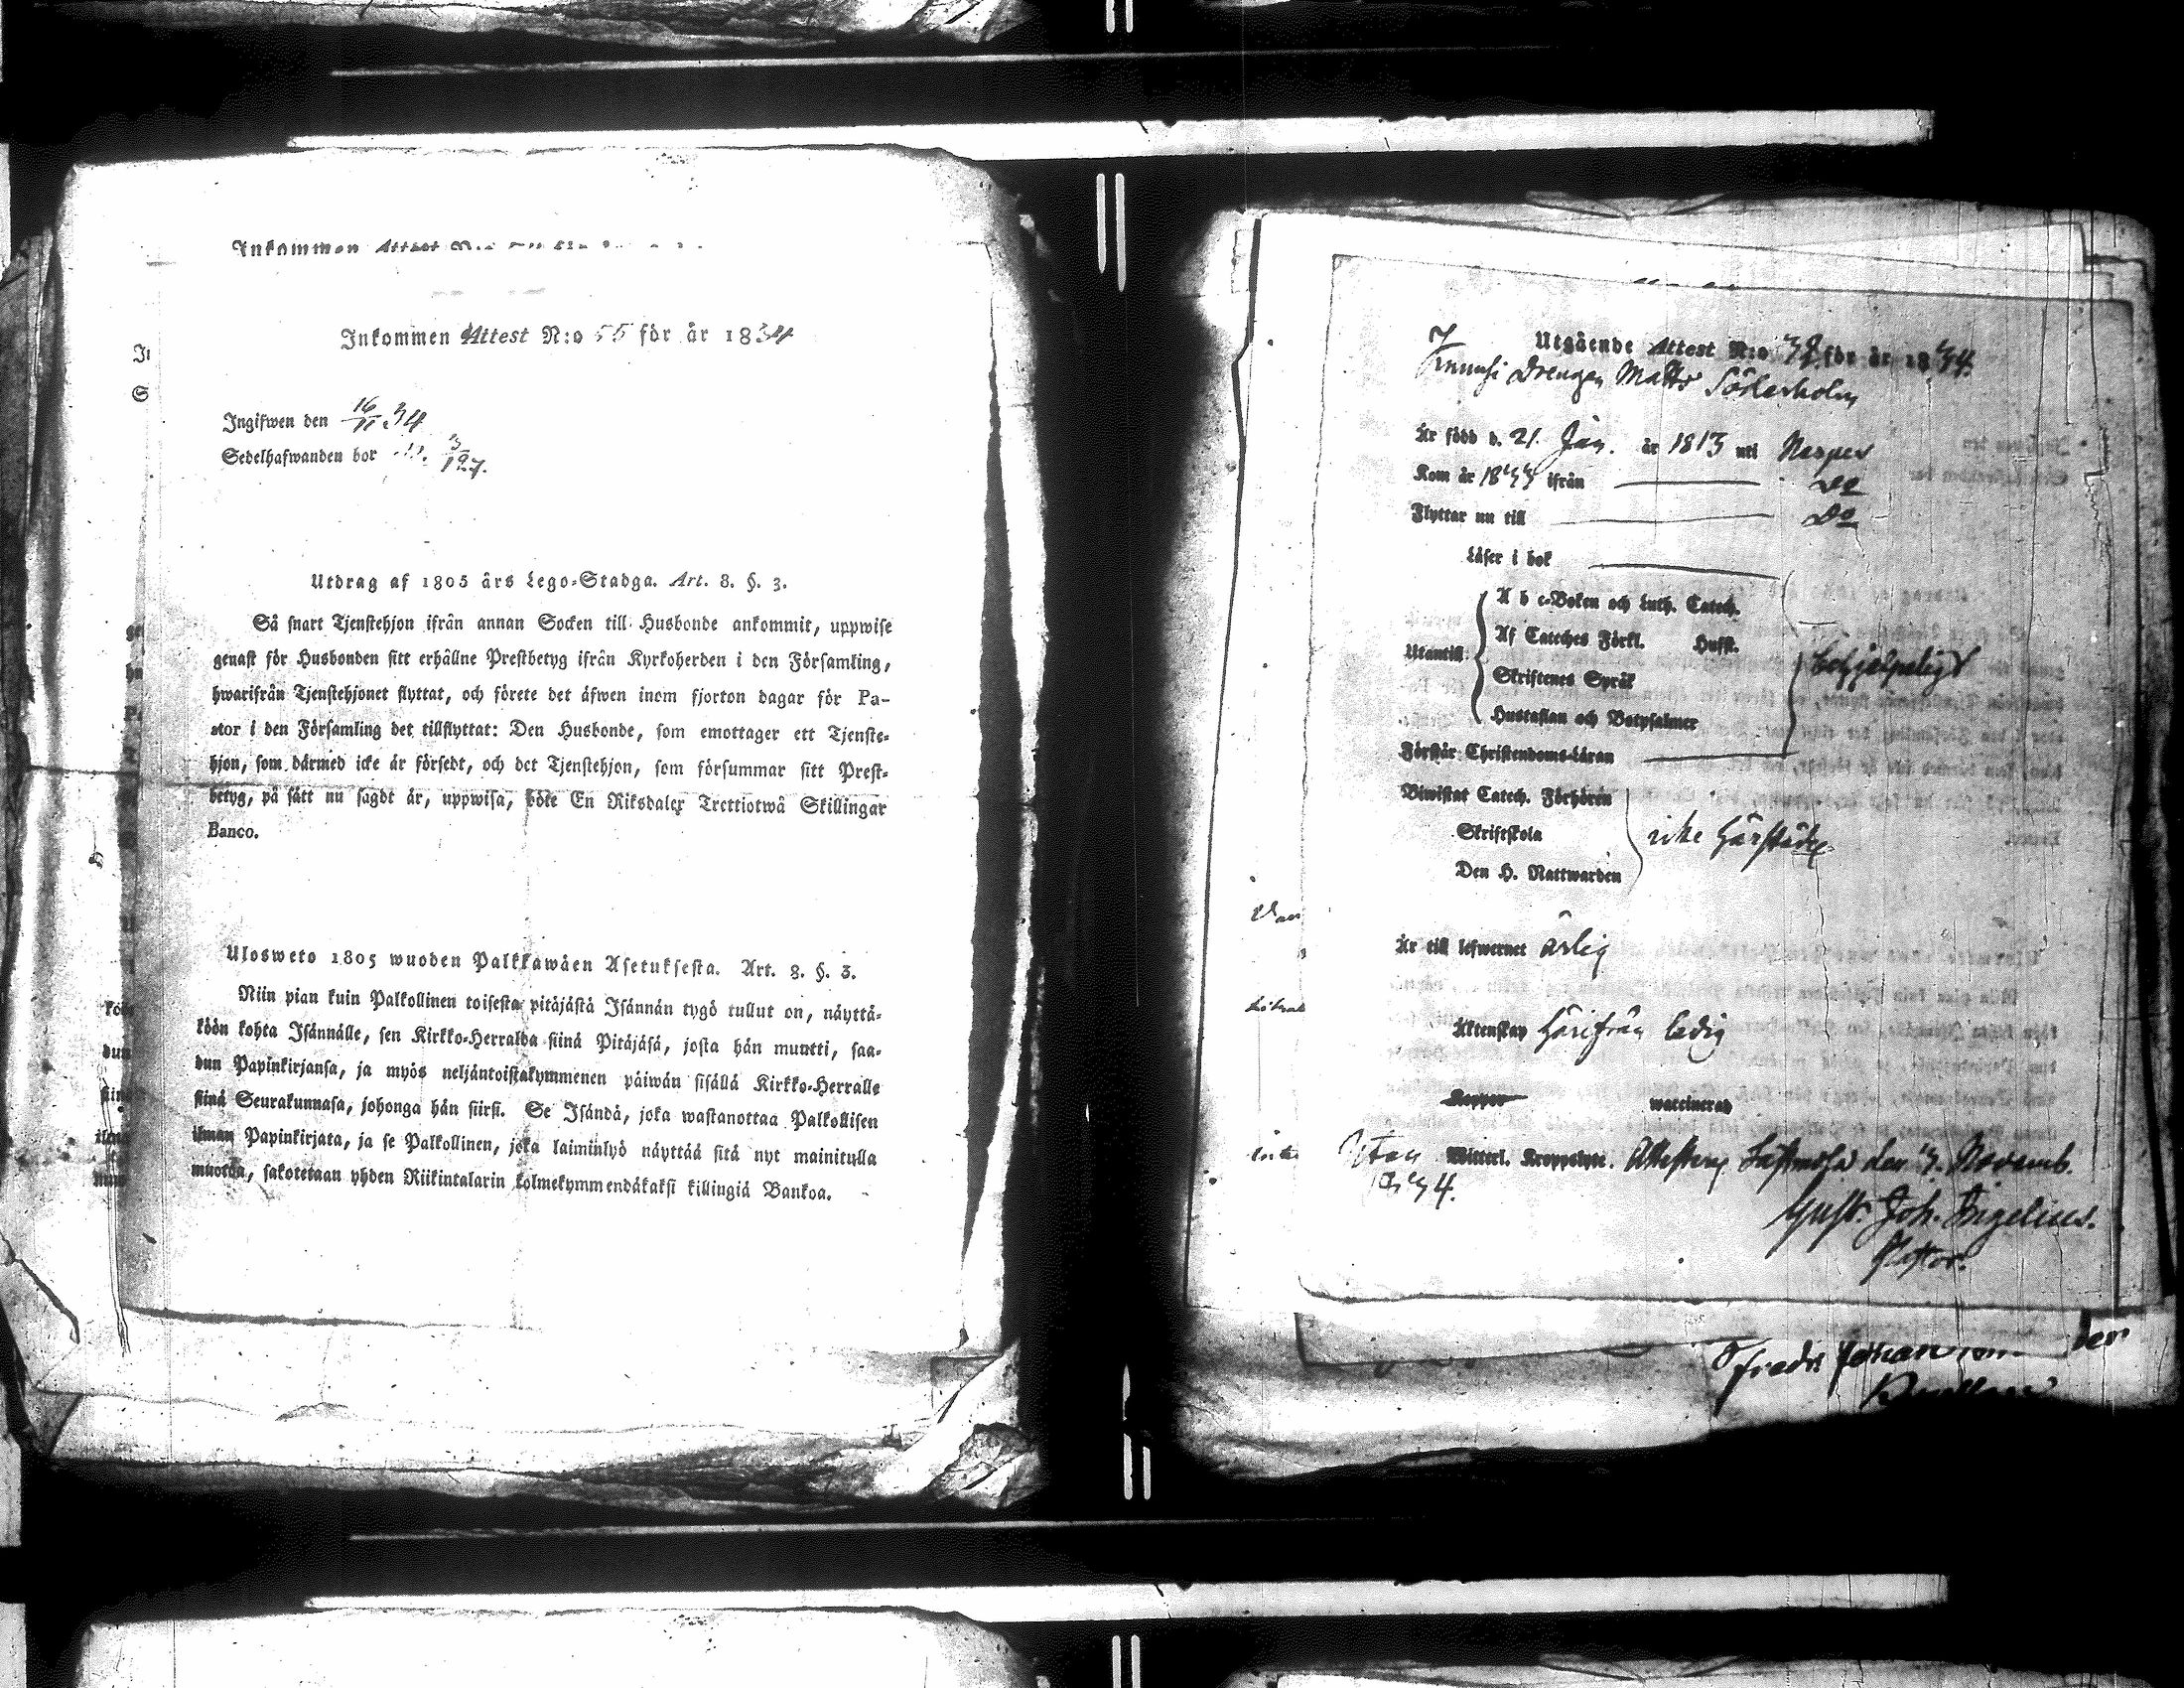 Inkommen Attest N:o
Inkommen Attest N:o 55 för år 1834
Ingifwen den 16/11 34
Sedelhafwanden bor
Utdrag af 1805 års Lego-Stadga. Art. 8. §. 3.
Så snart Tjenstehjon ifrån annan Socken till Husbonde ankommit, uppwise
genast för Husbonden sitt erhållne Prestbetyg ifrån Kyrkoherden i den Församling,
hwarifrån Tjenstehjonet flyttat, och förete det äfwen inom fjorton dagar för Pa-
stor i den Församling det tillflyttat: Den Husbonde, som emottager ett Tjenste-
hjon, som därmed icke är försedt, och det Tjenstehjon, som försummar sitt Prest-
betyg, på sätt nu sagdt är, uppwisa, böte En Riksdaler Trettiotwå Skillingar
Banco.
Ulosweto 1805 wuoden Palkkawäen Asetuksesta. Art. 8. §. 3.
Niin pian kuin Palkollinen toisesta pitäjästä Isännän tygö tullut on, näyttä-
köön kohta Isännälle, sen Kirkko-Herralda siinä Pitäjäsä, josta hän muutti, saa-
dun Papinkirjansa, ja myös neljäntoistakymmenen päiwän sisällä Kirkko-Herralle
siinä Seurakunnasa, johonga hän siirsi. Se Isändä, joka wastanottaa Palkollisen
ilman Papinkirjata, ja se Palkollinen, joka laiminlyö näyttää sitä nyt mainitulla
muotoa, sakotetaan yhden Riikintalarin kolmekymmendäkaksi killingiä Bankoa.
Utgående Attest N:o för år 1834.
Drengen Matts Söderholm
Är född d. 21. Jan. år 1813 uti Nerpes
Kom år 1833 ifrån Do
Flyttar nu till Do
Läser i bok
A b c-Boken och Luth. Catech.
Af Cateches Förkl. Husst.
Utantill: Skriftenes Språk
Hustaflan och Botpsalmer
behjelpeligt
Förstår Christendoms-Läran
Biwistat Catech. Förhören
Skriftskola
icke härstädes
Den H. Nattwarden
Är till lefwernet ärlig
Äktenskap härifrån ledig
Koppor waccinerad
Utan Witterl. Kroppslyte. Attesterar den 3. Novemb.
1834.
Gust. Joh. Bigelius.
Pastor.